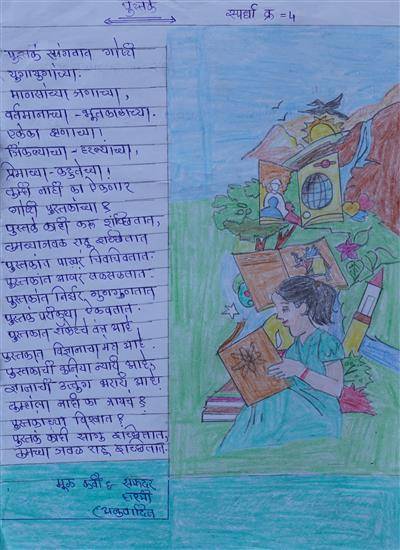 पुस्तकं
स्पर्धा क्र = 4
पुस्तकं सांगतात गोष्टी
युगायुगांच्या.
माणसांच्या जगाच्या,
वर्तमानाच्या - भूतकाळाच्या.
एकेका क्षणाच्या!
जिंकल्याच्या - हरल्याच्या,
प्रेमाच्या - कटुतेच्या!
तुम्ही नाही का ऐकणार
गोष्टी पुस्तकांच्या?
पुस्तकं काही करू इच्छितात,
तुमच्याजवळ राहू इच्छितात
पुस्तकांत पाखरं चिवचिवतात.
पुस्तकांत आखरं सळसळतात.
पुस्तकांत निर्झर गुणगुणतात
पुस्तकं परीकथा ऐकवतात.
पुस्तकात रॉकेटचं तंत्र आहे
पुस्तकात विज्ञानाचा मंत्र आहे.
पुस्तकाची दुनिया न्यारी आहे
ज्ञानाची उत्तुंग भरारी आहे.
तुम्हांला नाही का जायचं?
पुस्तकाच्या विश्वात?
पुस्तकं काही सांगू इच्छितात,
तुमच्या जवळ राहू इच्छितात.
मूळ कवी सफदर
हाश्मी
(अनुवादित